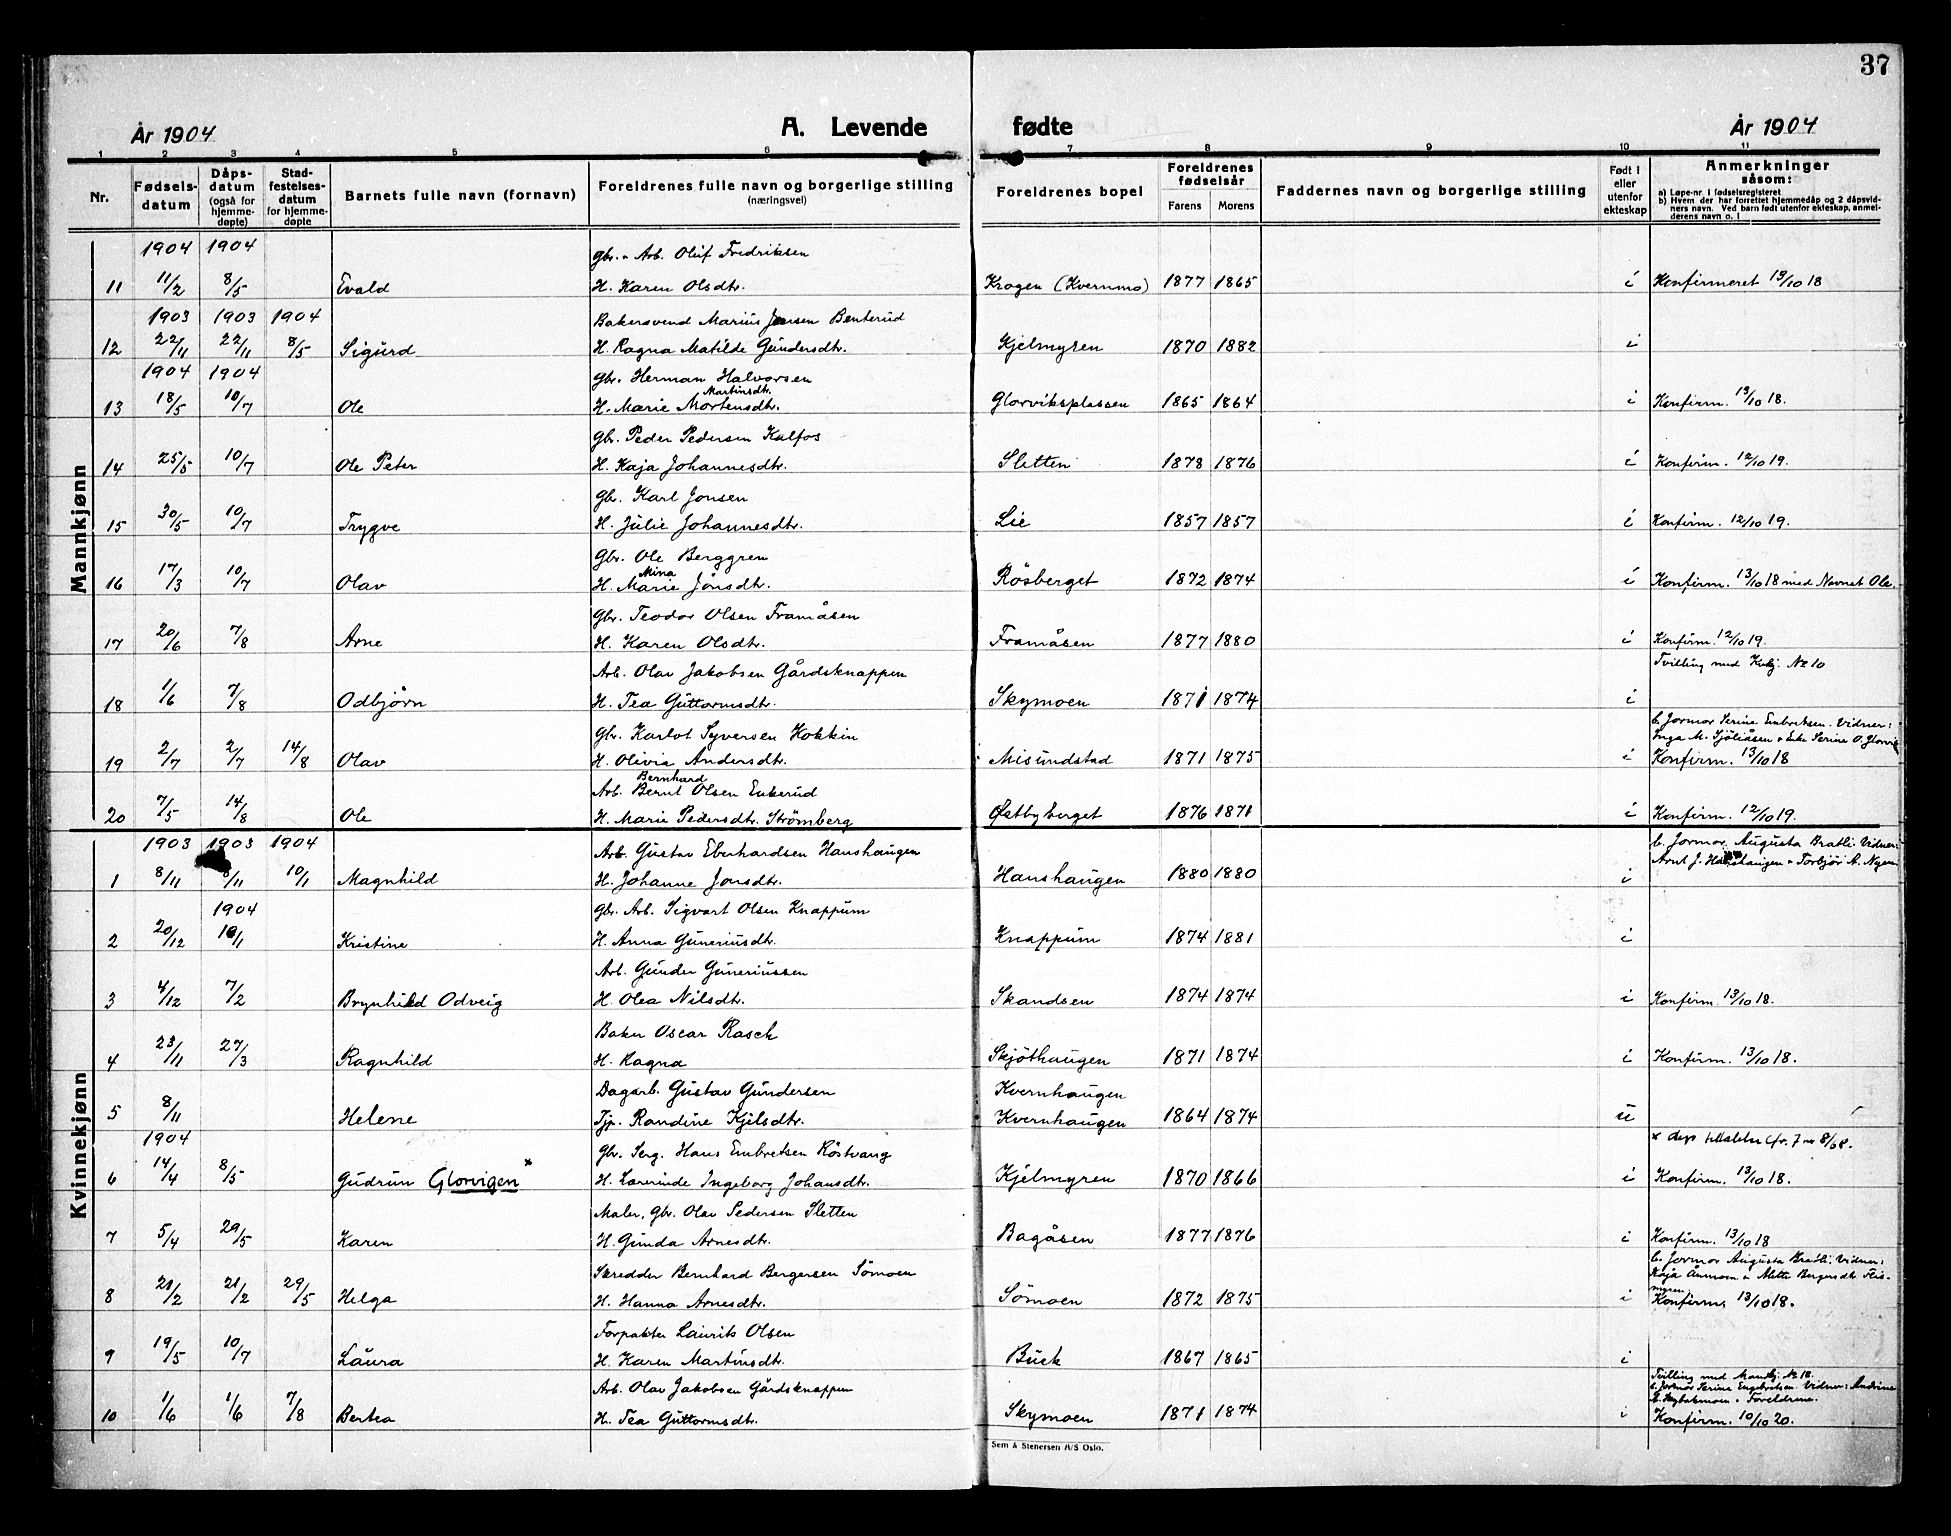 37
År 1904
A. Levende fødte
År 1904
1 2 3 4 5 6 7 8 9 10 11
Nr. Fødselsdatum Dåpsdatum (også for hjemmedøpte) Stadfestelsesdatum for hjemmedøpte Barnets fulle navn (fornavn) Foreldrenes fulle navn og borgerlige stilling (næringsvei) Foreldrenes bopel Foreldrenes fødselsår Farens Morens Faddernes navn og borgerlige stilling Født i eller utenfor ekteskap Anmerkninger såsom:
a) Løpe-nr. i fødselsregisteret
b) Hvem der har forrettet hjemmedåp og 2 dåpsvidners navn. Ved barn født utenfor ekteskap, anmelderens navn o. l
Mannkjønn
1904 1904 gbr. - Arb. Oluf Fredriksen
11 11/2 8/5 Evald H. Karen Olsdtr. Krogen (Kvernmo) 1877 1865 i Konfirmeret 13/10 18
1903 1903 1904 Bakersvend Marius Jensen Benterud
12 22/11 22/11 8/5 Sigurd H. Ragna Matilde Gundersdtr. Kjelmyren 1870 1882 i
1904 1904 gbr. Herman Halvorsen
Martinsdtr.
13 18/5 10/7 Ole H. Marie Mortensdtr. Glorviksplassen 1865 1864 i Konfirm. 13/10 18.
gbr. Peder Pedersen Kalfos
14 25/5 10/7 Ole Peter H. Kaja Johannesdtr. Sletten 1878 1876 i Konfirm. 12/10 19.
gbr. Karl Jonsen
15 30/5 10/7 Trygve H. Julie Johannesdtr. Lie 1857 1857 i Konfirm. 12/10 19.
Gbr. Ole Berggren
Mina
16 17/3 10/7 Olav H. Marie Jonsdtr. Røsberget 1872 1874 i Konfirm. 13/10 18 med Navnet Ole.
gbr. Teodor Olsen Framåsen
17 20/6 7/8 Arne H. Karen Olsdtr. Framåsen 1877 1880 i Konfirm. 12/10 19.
Arb. Olav Jakobsen Gårdsknappen Tvilling med Kvkj. No 10
18 1/6 7/8 Odbjørn H. Tea Guttormsdtr. Skymoen 1871 1874 i
gbr. Karlot Syversen Hokkin b. Jormor Serine Embretsen. Vidner:
Inga M. Sjøliåsen + Enke Serine O. Glorvik
19 2/7 2/7 14/8 Olav H. Olivia Andersdtr. Misundstad 1871 1875 i Konfirm. 13/10 18
Bernhard
Arb. Bernt Olsen Enkerud
20 7/5 14/8 Ole H. Marie Pedersdtr. Strömberg Østbyberget 1876 1871 i Konfirm. 12/10 19.
Kvinnekjønn
1903 1903 1904 Arb. Gustav Eberhardsen Hanshaugen b. Jormor Augusta Bratli. Vidner:
Arnt J. Hanshaugen + Torbjør A. Nyen
1 8/11 8/11 10/1 Magnhild H. Johanne Jonsdtr. Hanshaugen 1880 1880 i
1904 gbr. Arb. Sigvart Olsen Knappum
2 20/12 10/1 Kristine H. Anna Guneriusdtr. Knappum 1874 1881 i
Arb. Gunder Guneriussen
3 4/12 7/2 Brynhild Odveig H. Olea Nilsdtr. Skandsen 1874 1874 i Konfirm. 13/10 18.
Baker Oscar Rasch
4 23/11 27/3 Ragnhild H. Ragna Skjöthaugen 1871 1874 i Konfirm. 13/10 18.
Dagarb. Gustav Gundersen Kvernhaugen
5 8/11 Helene Tjp. Randine Kjelsdtr. Kvernhaugen 1864 1874 u
1904 gbr. Serg. Hans Embretsen Röstvang x deps tillatelse
6 14/4 8/5 Gudrun Glorvigen x H. Laurinde Ingeborg Johansdtr. Kjelmyren 1870 1866 i Konfirm. 13/10 18.
Maler, Gbr. Olav Pedersen Sletten
7 5/4 29/5 Karen H. Gunda Arnesdtr. Bagåsen 1877 1876 i Konfirm. 13/10 18
Skredder Bernhard Bergersen Sömoen b. Jormor Augusta Bratli. Vidner:
Kaja Ånmoen + Mette Bergersdtr. Flismyren
8 21/2 21/2 29/5 Helga H. Hanna Arnesdtr. Sömoen 1872 1875 i Konfirm. 13/10 18.
Forpakter Laurits Olsen
9 19/5 10/7 Laura H. Karen Martinsdtr. Buck 1867 1865 i
Arb. Olav Jakobsen Gårdsknappen Tvilling med Mankj. No 18.
b. Jormor Serine Engebretsen. Vidner: Andrine
Foreldrene.
10 1/6 1/6 7/8 Bertea H. Tea Guttormsdtr. Skymoen 1871 1874 i Konfirm. 10/10 20.
Sem & Stenersen A/S Oslo.